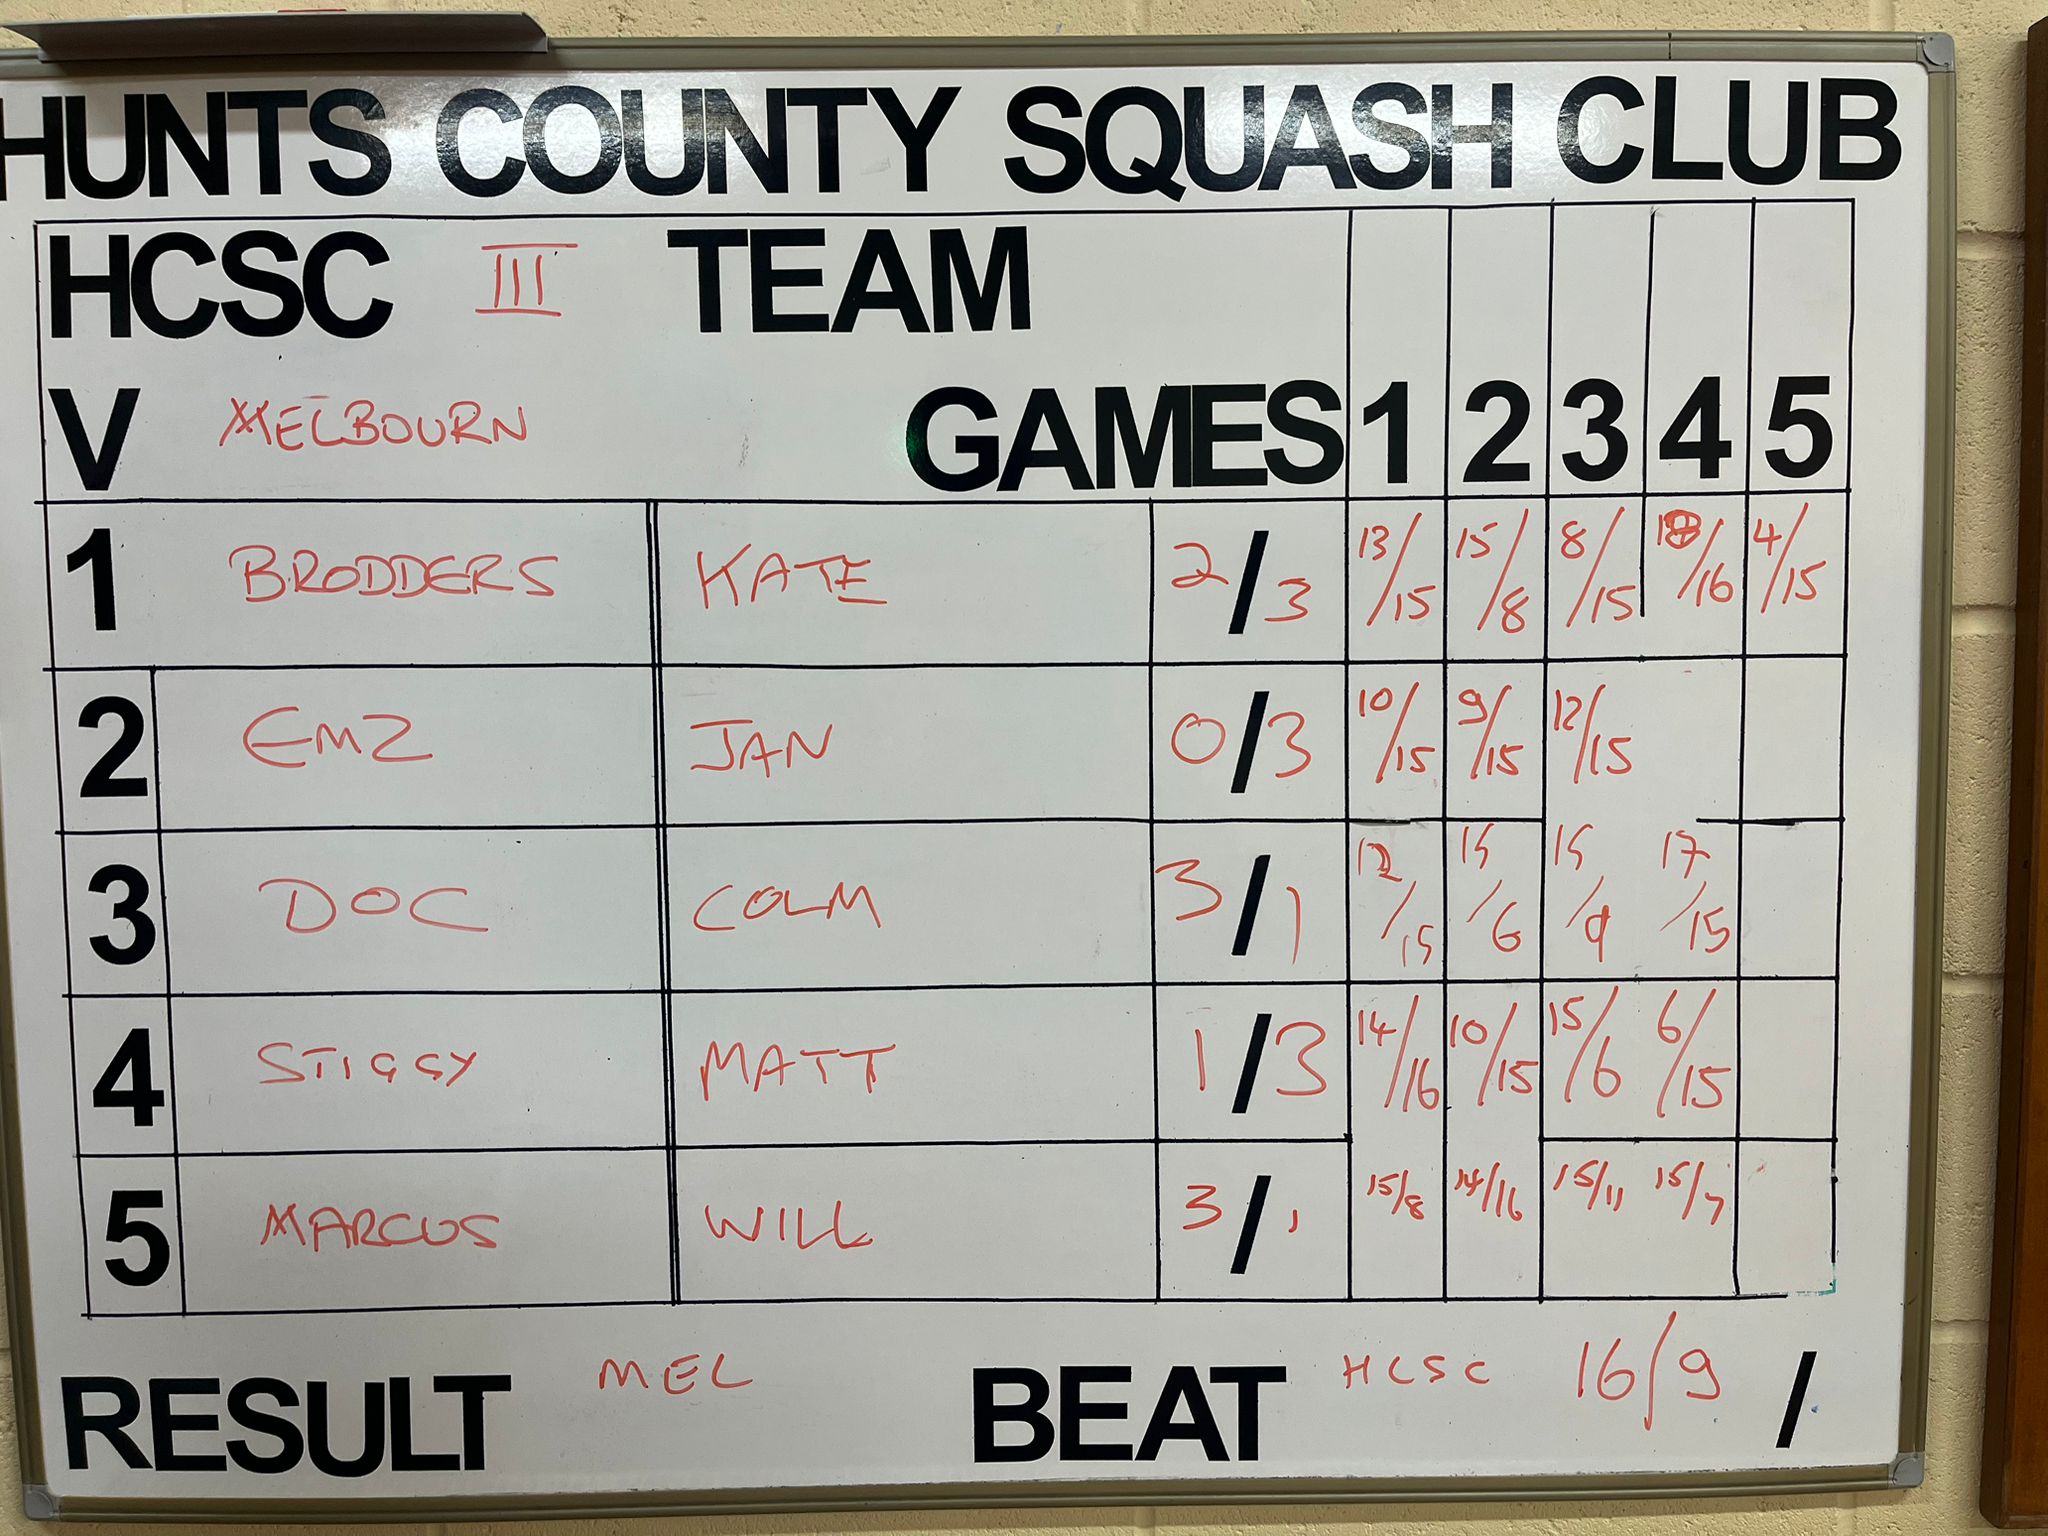 HUNTS COUNTY SQUASH CLUB
HCSC III TEAM
V MELBOURN GAMES 1 2 3 4 5
1 BRODDERS KATE 2/3 13/15 15/8 8/15 18/16 4/15
2 EMZ JAN 0/3 10/15 9/15 12/15
3 DOC COLM 3/1 12/15 15/6 15/9 17/15
4 STIGGY MATT 1/3 14/16 10/15 15/6 6/15
5 MARCUS WILL 3/1 15/8 14/16 15/11 15/7
RESULT MEL BEAT HCSC 16/9 /